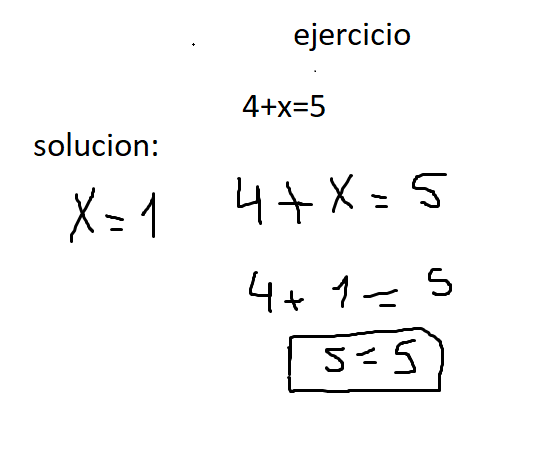 ejercicio
4+x=5
solucion:
X=1
4+X=5
4+1=5
5=5